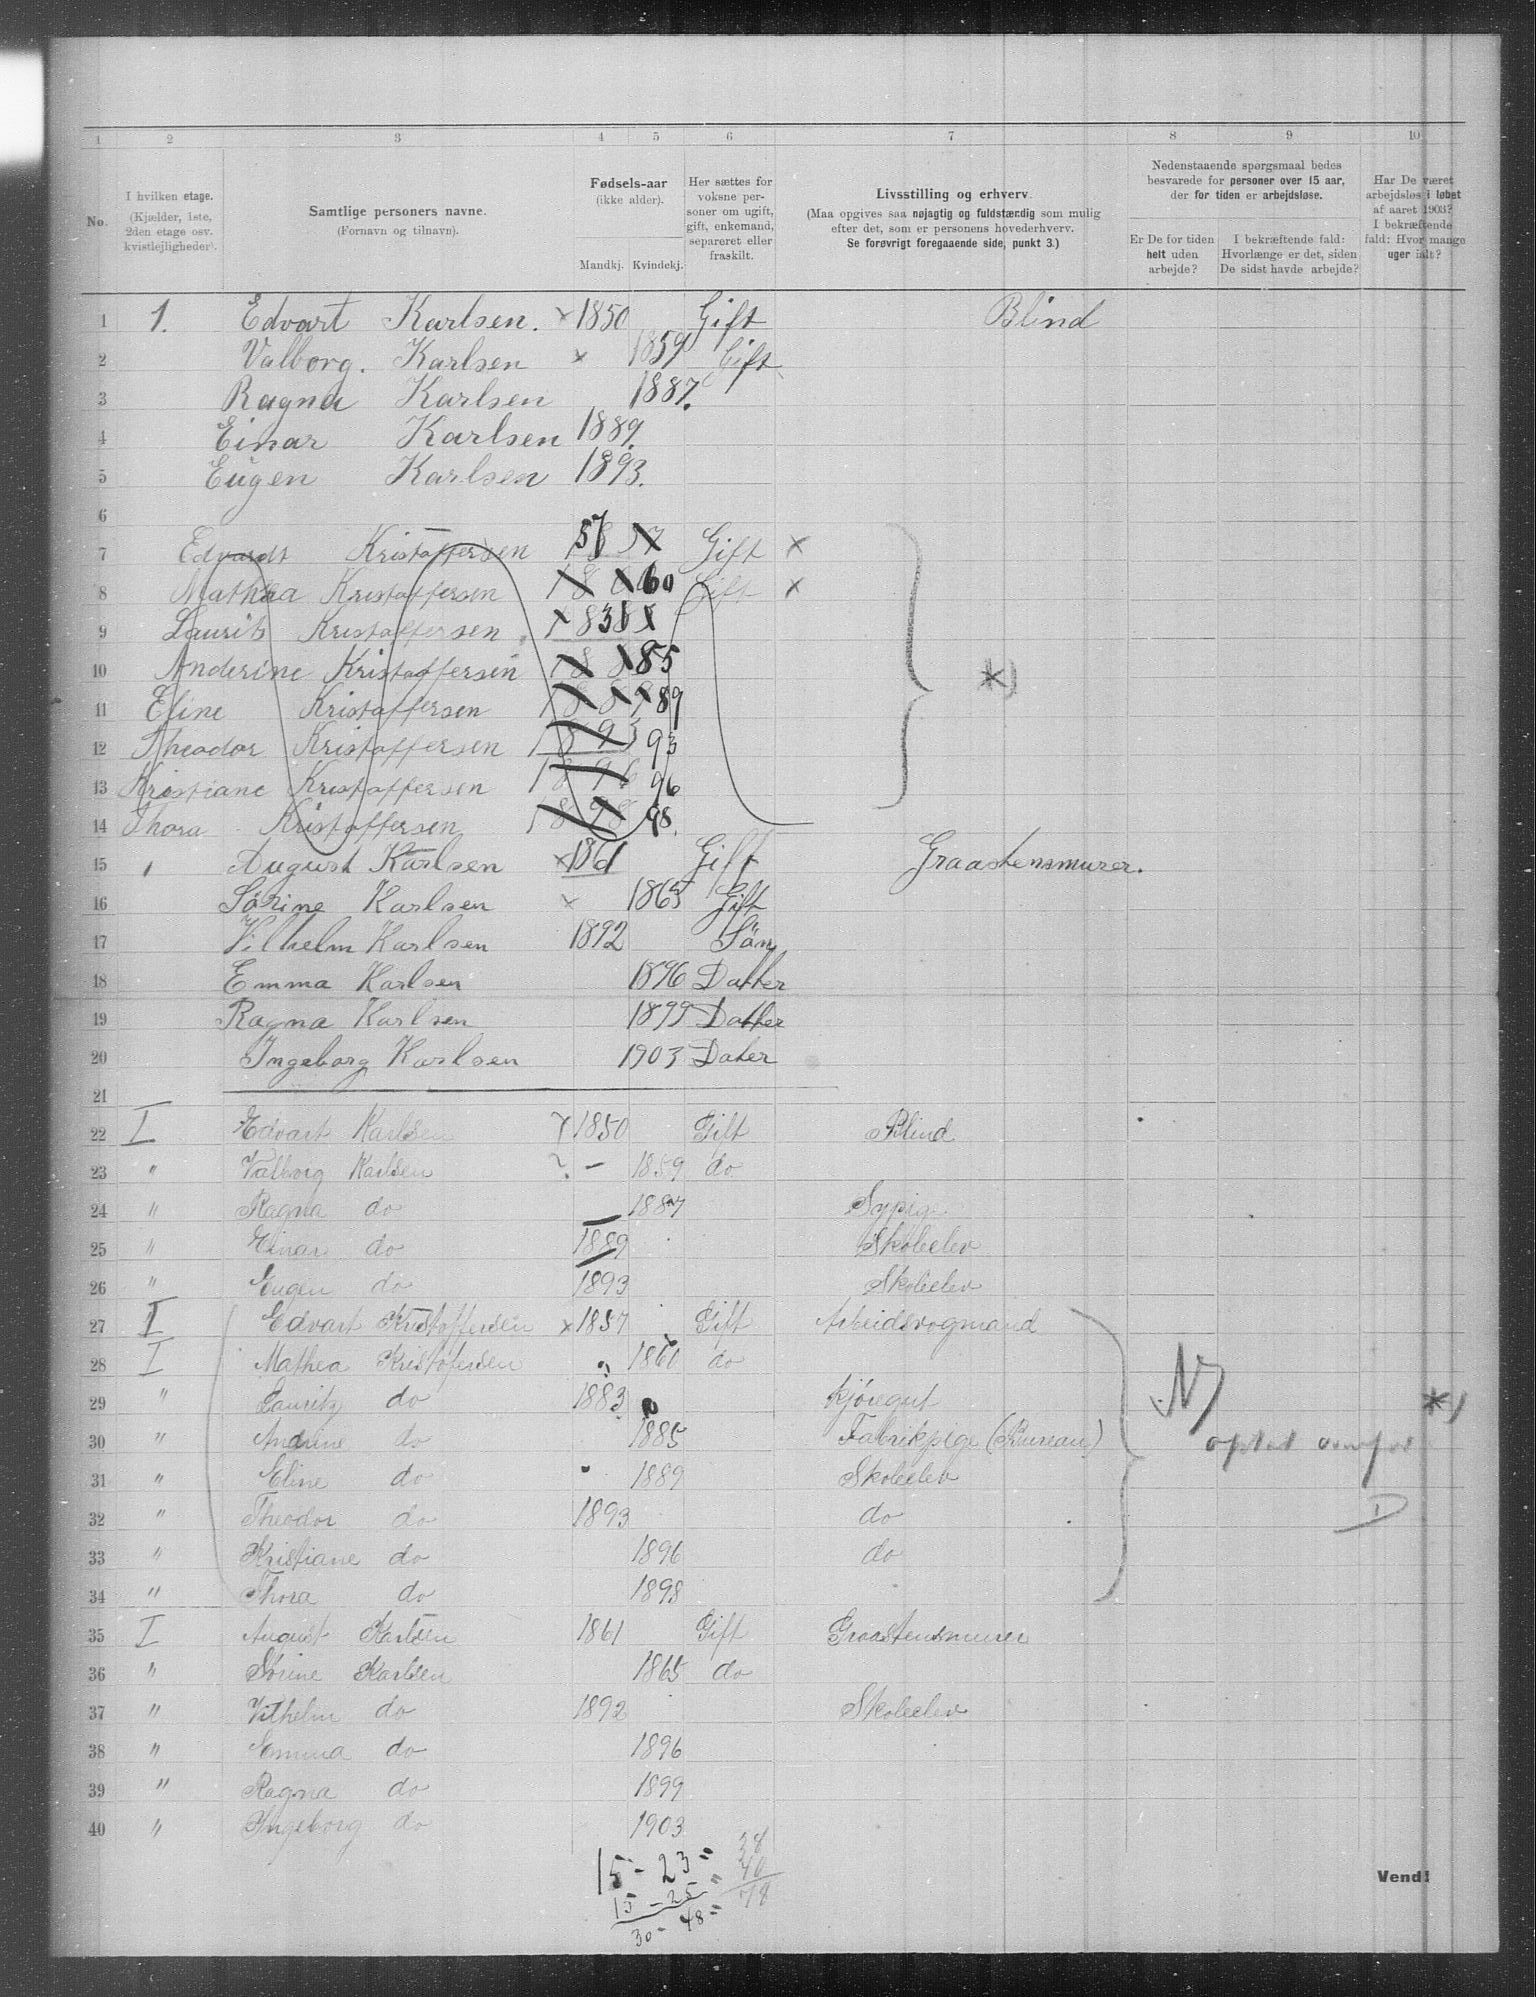 1 2 3 4 5 6 7 8 9 10
No.
I hvilken etage.
(Kjælder, 1ste,
2den etage osv.
kvistlejligheder).
Samtlige personers navne.
(Fornavn og tilnavn).
Fødsels-aar
(ikke alder).
Mandkj. Kvindekj.
Her sættes for
voksne per-
soner om ugift,
gift, enkemand,
separeret eller
fraskilt.
Livsstilling og erhverv.
(Maa opgives saa nøjagtig og fuldstændig som mulig
efter det, som er personens hovederhverv.
Se forøvrigt foregaaende side, punkt 3.)
Nedenstaaende spørgsmaal bedes
besvarede for personer over 15 aar,
der for tiden er arbejdsløse.
Er De for tiden
helt uden
arbejde?
I bekræftende fald:
Hvorlænge er det, siden
De sidst havde arbejde?
Har De været
arbejdsløs i løbet
af aaret 1903?
I bekræftende
fald: Hvor mange
uger ialt?
1 1. Edvart Karlsen. × 1850 Gift Blind
2 Valborg. Karlsen × 1859 Gift
3 Ragna Karlsen 1887.
4 Einar Karlsen 1889.
5 Eugen Karlsen 1893.
6
7 Edvardt Kristaffersen 57 Gift ×
8 Mathea Kristaffersen 60 Gift ×
9 Laurits Kristaffersen 83
10 Anderine Kristaffersen 85
11 Eline Kristaffersen 89
12 Theodor Kristaffersen 1893 93
13 Kristiane Kristaffersen 1896 96
14 Thora Kristaffersen 1898 98.
*)
15 August Karlsen × 1861 Gift Graastensmurer.
16 Sörine Karlsen × 1865 Gift
17 Vilhelm Karlsen 1892 Sön
18 Emma Karlsen 1896 Datter
19 Ragna Karlsen 1899 Datter
20 Ingeborg Karlsen 1903 Dater
21
22 I Edvart Karlsen 1850 Gift Blind
23 " Valborg Karlsen ? – 1859 do
24 " Ragna do 1887 Sypige
25 " Einar do 1889 Skoleelev
26 " Eugen do 1893 Skoleelev
27 I Edvart Kristoffersen × 1857 Gift Arbeidsvogmand
28 I Mathea Kristofersen 1860 do
29 " Lauritz do 1883 Kjöregut *)
30 " Andrine do 1885 Fabrikpige (Bureau)
31 " Eline do 1889 Skoleelev
32 " Theodor do 1893 do
33 " Kristiane do 1896 do
34 " Thora do 1898
35 I August Karlsen 1861 Gift Graastensmurer
36 " Sörine Karlsen 1865 do
37 " Vilhelm do 1892 Skoleelev
38 " Emma do 1896
39 " Ragna do 1899
40 " Ingeborg do 1903
15 - 23 = 38
15 - 25 = 40
30 - 48 = 78
Vend!